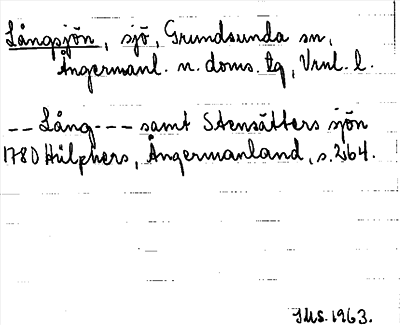 Långsjön, sjö, Grundsunda sn,
Ångermanl. n. doms. tg, Vrnl. l.
-- Lång --- samt Stensätters sjön
1780 Hülphers, Ångermanland, s. 264.
JMS. 1963.